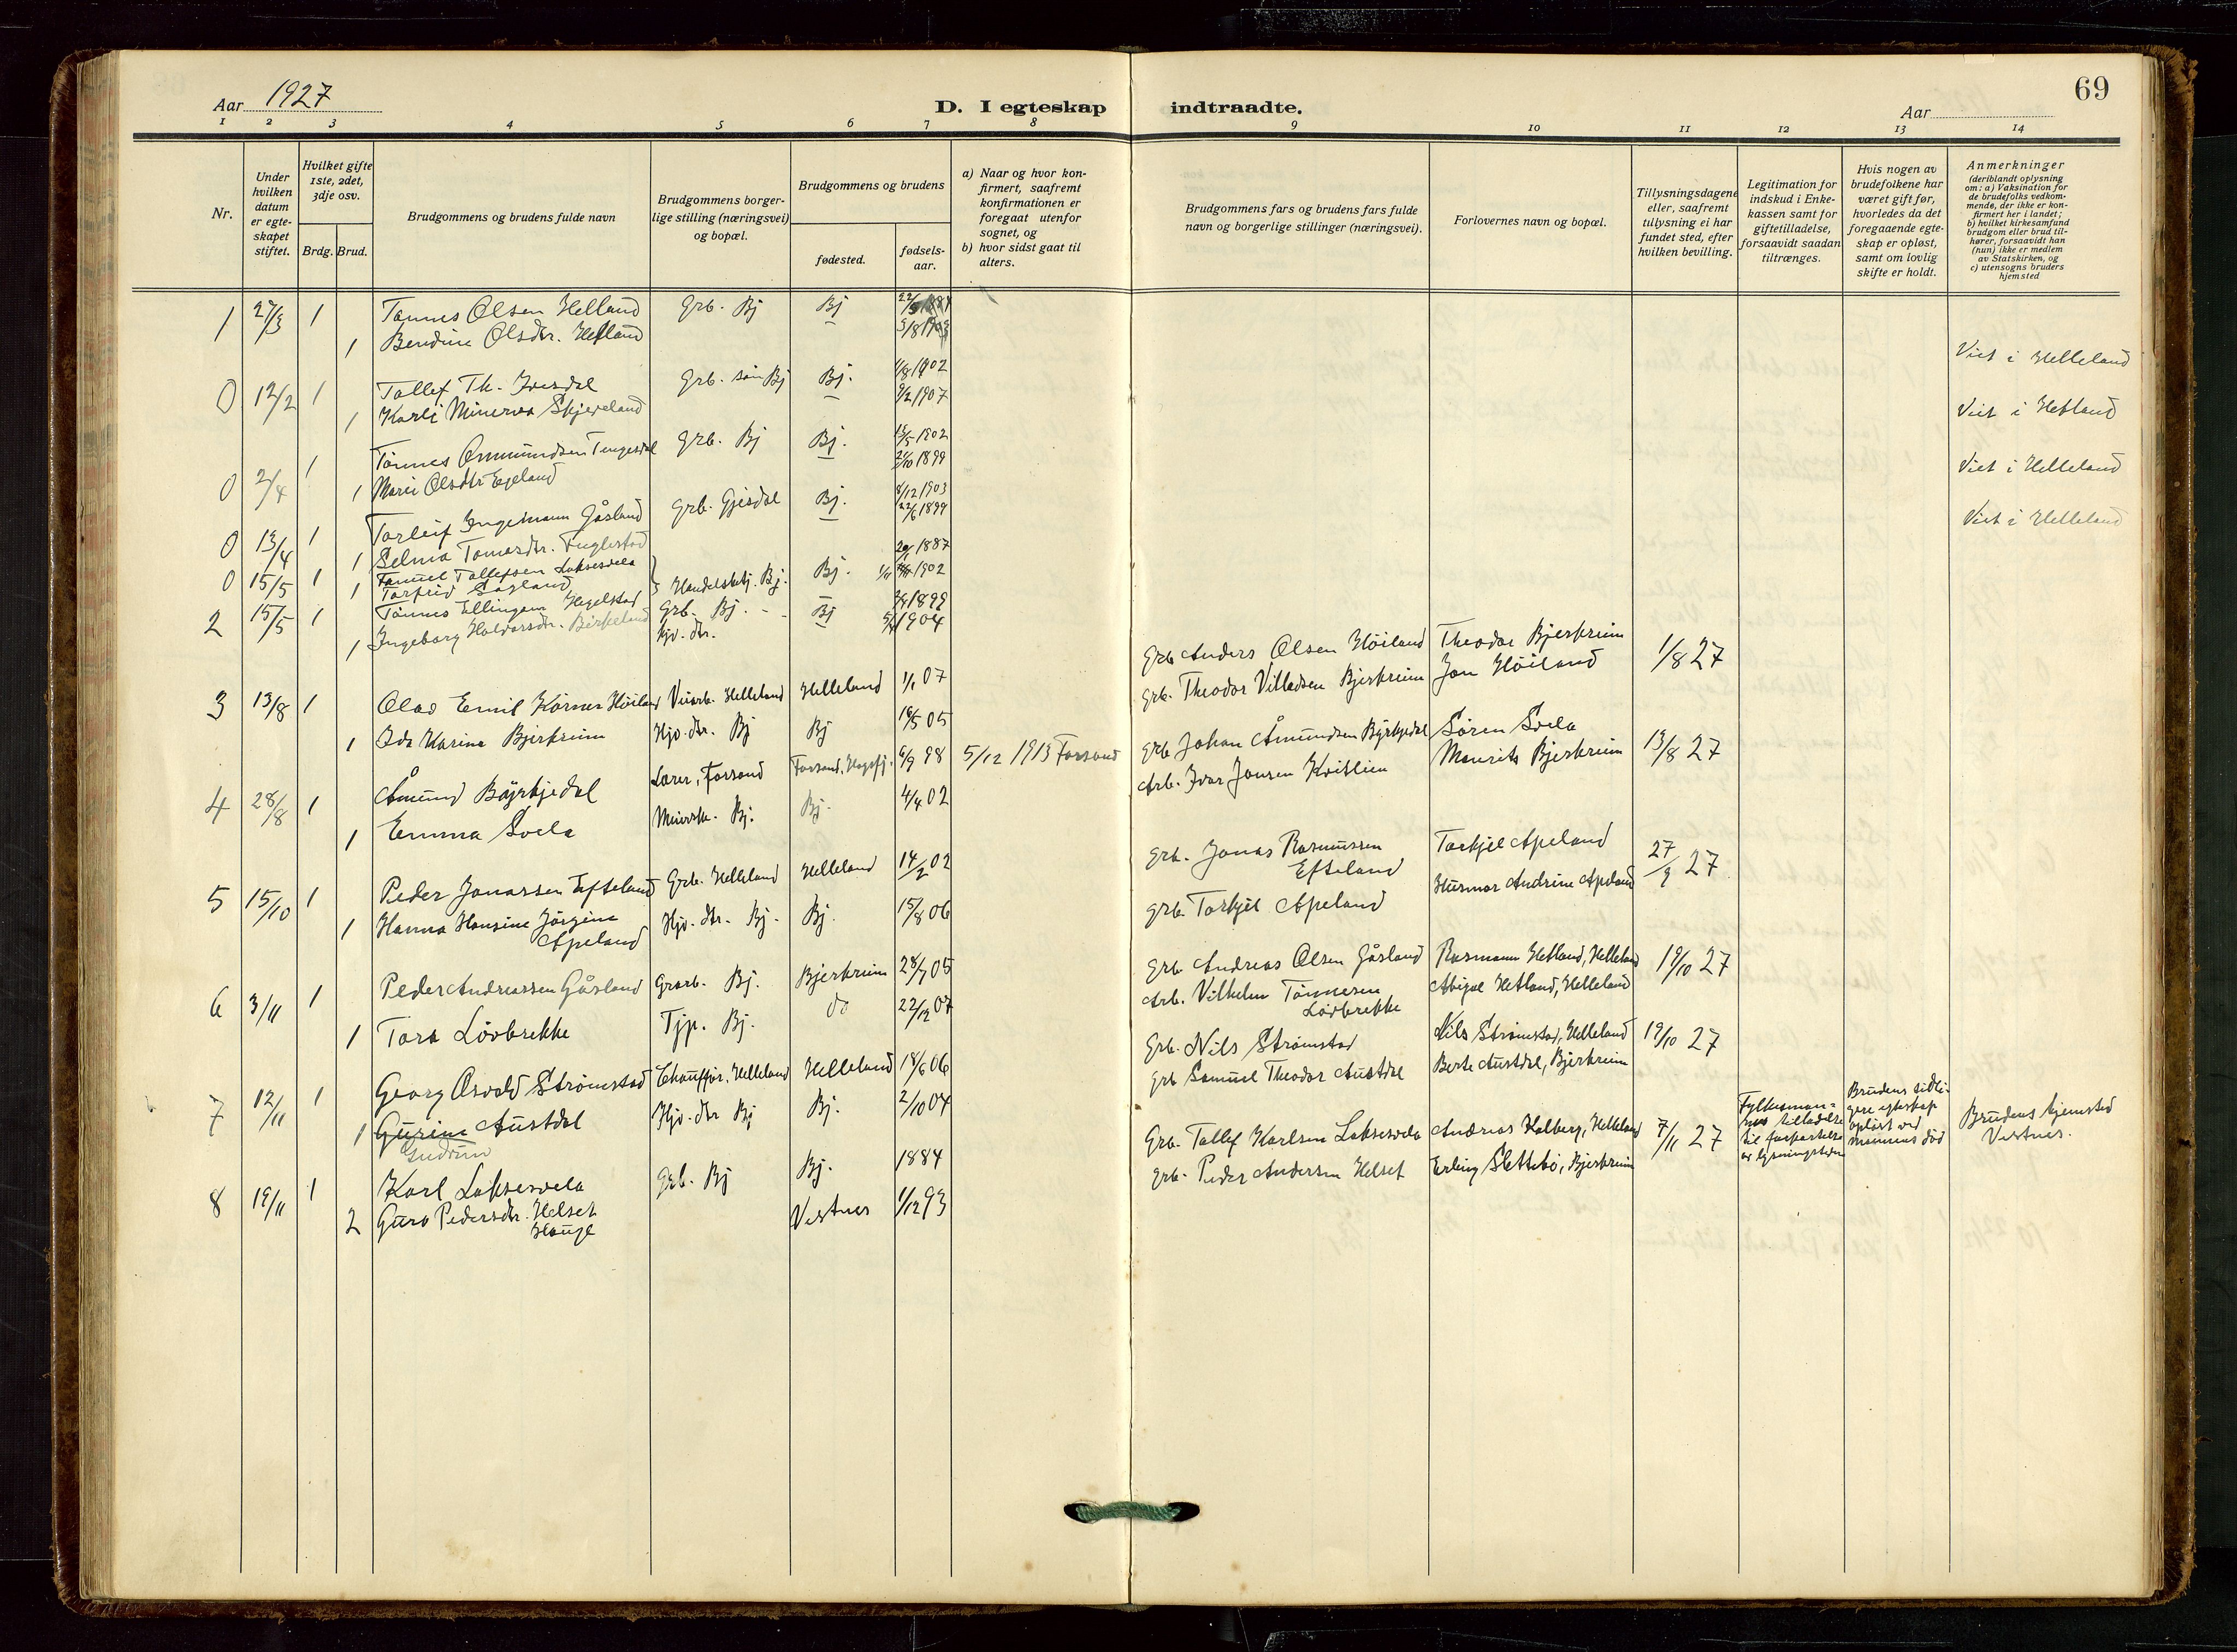 69
Aar 1927
D. I egteskap indtraadte.
Aar
1 2 3 4 5 6 7 8 9 10 11 12 13 14
Nr.
Under hvilken datum er egteskapet stiftet.
Hvilket gifte 1ste, 2det, 3dje osv.
Brdg. Brud.
Brudgommens og brudens fulde navn
Brudgommens borgerlige stilling (næringsvei) og bopæl.
Brudgommens og brudens
fødested.
fødselsaar.
a) Naar og hvor konfirmert, saafremt konfirmationen er foregaat utenfor sognet, og
b) hvor sidst gaat til alters.
Brudgommens fars og brudens fars fulde navn og borgerlige stillinger (næringsvei).
Forlovernes navn og bopæl.
Tillysningsdagene eller, saafremt tillysning ei har fundet sted, efter hvilken bevilling.
Legitimation for indskud i Enkekassen samt for giftetilladelse, forsaavidt saadan tiltrænges.
Hvis nogen av brudefolkene har været gift før, hvorledes da det foregaaende egteskap er opløst, samt om lovlig skifte er holdt.
Anmerkninger
(deriblandt oplysning om: a) Vaksination for de brudefolks vedkommende, der ikke er konfirmert her i landet; b) hvilket kirkesamfund brudgom eller brud tilhører, forsaavidt han (hun) ikke er medlem av Statskirken, og c) utensogns bruders hjemsted
1 27/3 1 Tønnes Olsen Helland Grb. Bj Bj
1 Bendine Olsdtr. Hetland
Viet i Helleland
0 12/2 1 Tollef Th. Ivesdal Grb. søn Bj Bj. 1/8 1902
1 Karli Minerva Skjeveland 9/2 1907
Viet i Hetland
0 2/4 1 Tönnes Ommundsen Tengesdal Grb. Bj Bj. 15/5 1902
1 Marie Olsdtr Egeland 21/10 1899
Viet i Helleland
0 13/4 1 Torleif Ingemann Gåsland Grb. Gjesdal Bj. 8/12 1903
1 Selma Tomasdtr. Fuglestad 22/6 1899
Viet i Helleland
0 15/5 1 Samuel Tollefsen Laksesvela Handelsbetj. Bj. Bj. 1887
1 Torfrid Sagland 1902
2 15/5 1 Tönnes Ellingsen Hegelstad Grb. Bj. Bj 1899
1 Ingeborg Haldorsdtr. Birkeland Hjv. dtr. 1904
3 13/8 1 Olav Emil Körner Höiland Veiarb. Helleland Helleland 1/1 07 Grb Anders Olsen Höiland Theodor Bjerkreim 1/8 27
1 Ida Karine Bjerkreim Hjv. dtr. Bj Bj 16/5 05 Grb. Theodor Villadsen Bjerkreim Jon Höiland
4 28/8 1 Åmund Böyrkjedal Lærer, Forsand Forsand, Högsfj. 6/9 98 5/12 1913 Forsand Grb Johan Åmundsen Byrkjedal Sören Svela 13/8 27
1 Emma Svela Meiersk. Bj. Bj. 4/4 02 Arb. Ivar Jonsen Kvitlien Maurits Bjerkreim
5 15/10 1 Peder Jonassen Efteland Grb. Helleland Helleland 14/2 02 Grb. Jonas Rasmussen Efteland Torkjel Apeland 27/9 27
1 Hanna Hansine Jörgine Apeland Hjv. dtr. Bj. Bj. 15/8 06 Grb. Torkjel Apeland Husmor Andrine Apeland
6 3/11 1 Peder Andreassen Gåsland Grarb. Bj. Bjerkreim 28/7 05 Grb Andreas Olsen Gåsland Rasmann Hetland, Helleland 19/10 27
1 Tora Lövbrekke Tjp. Bj. do 22/12 07 Arb. Vilhelm Tönnesen Lövbrekke Abigael Hetland, Helleland
7 12/11 1 Georg Osvald Strömstad Chauffør, Helleland Helleland 18/6 06 Grb. Nils Strömstad Nils Strömstad, Helleland 19/10 27
1 Gurine Austdal Hjv. dtr Bj Bj. 2/10 04 Grb Samuel Theodor Austdal Berte Austdal, Bjerkreim
Gudrun
8 19/11 1 Karl Laksesvela Grb. Bj Bj. 1884 Grb. Tollef Karlsen Laksesvela Andreas Halberg, Helleland 7/11 27 Fylkesmannens tilladelse til forkortelse av lysningstiden Brudens tidligere egteskap opløst ved mannens död Brudens hjemsted Vestnes.
2 Guro Pedersdtr. Helset Hauge Vestnes 1/12 93 Grb. Peder Andersen Helset Erling Slettebö, Bjerkreim